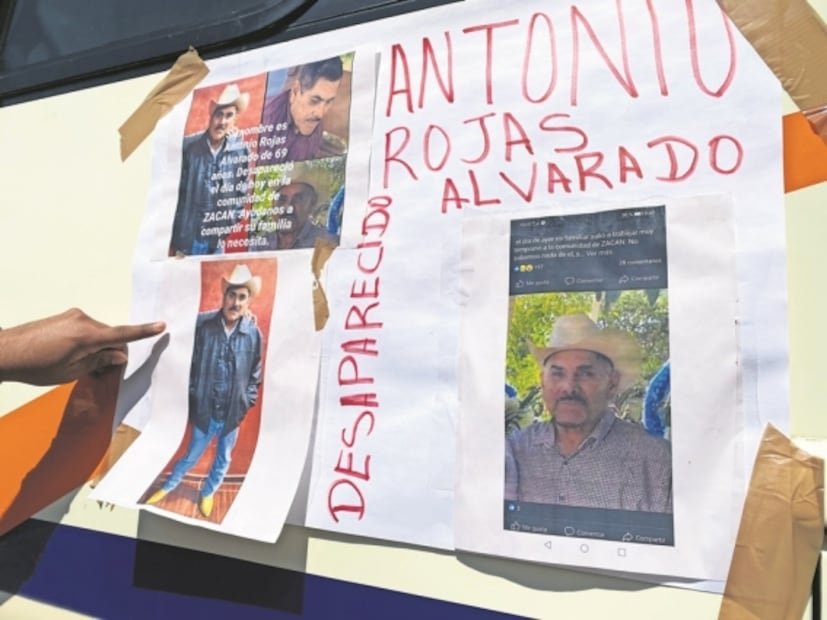 ANTONIO
ROJAS
ALVARADO
DESAPARECIDO
Su nombre es
Antonio Rojas
Alvarado de 69
años. Desapareció
el día de hoy en la
comunidad de
ZACAN. Ayúdanos a
compartir su familia
lo necesita.
el dia de ayer
salió a trabajar muy
temprano a la comunidad de ZACAN. No
sabemos nada de el, Ver más
197
28 comentarios
Me gusta
Comentar
Compartir
Me gusta
Comentar
Compartir